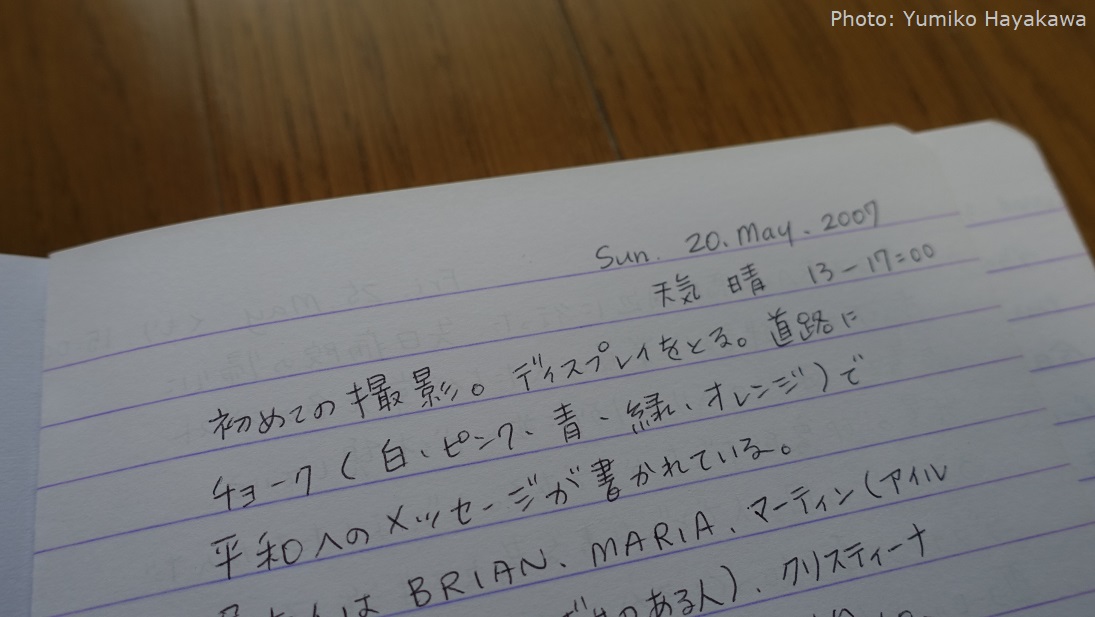 Photo: Yumiko Hayakawa
Sun. 20. May. 2007
天気 晴 13-17:00
初めての撮影。ディスプレイをとる。道路に
チョーク(白、ピンク、青、緑、オレンジ)で
平和へのメッセージが書かれている。
は BRIAN、MARIA、マーティン(アイル
のある人)、クリスティーナ